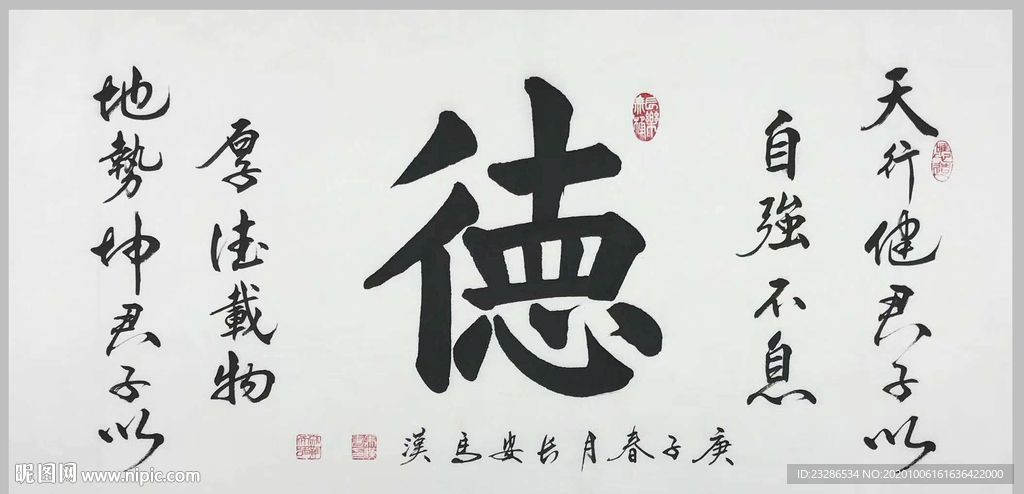 天行健君子以
自強不息
徳
地勢坤君子以
厚德載物
庚子春月長安馬漢
昵图网 www.nipic.com
ID:23286534 NO:20201006161636422000